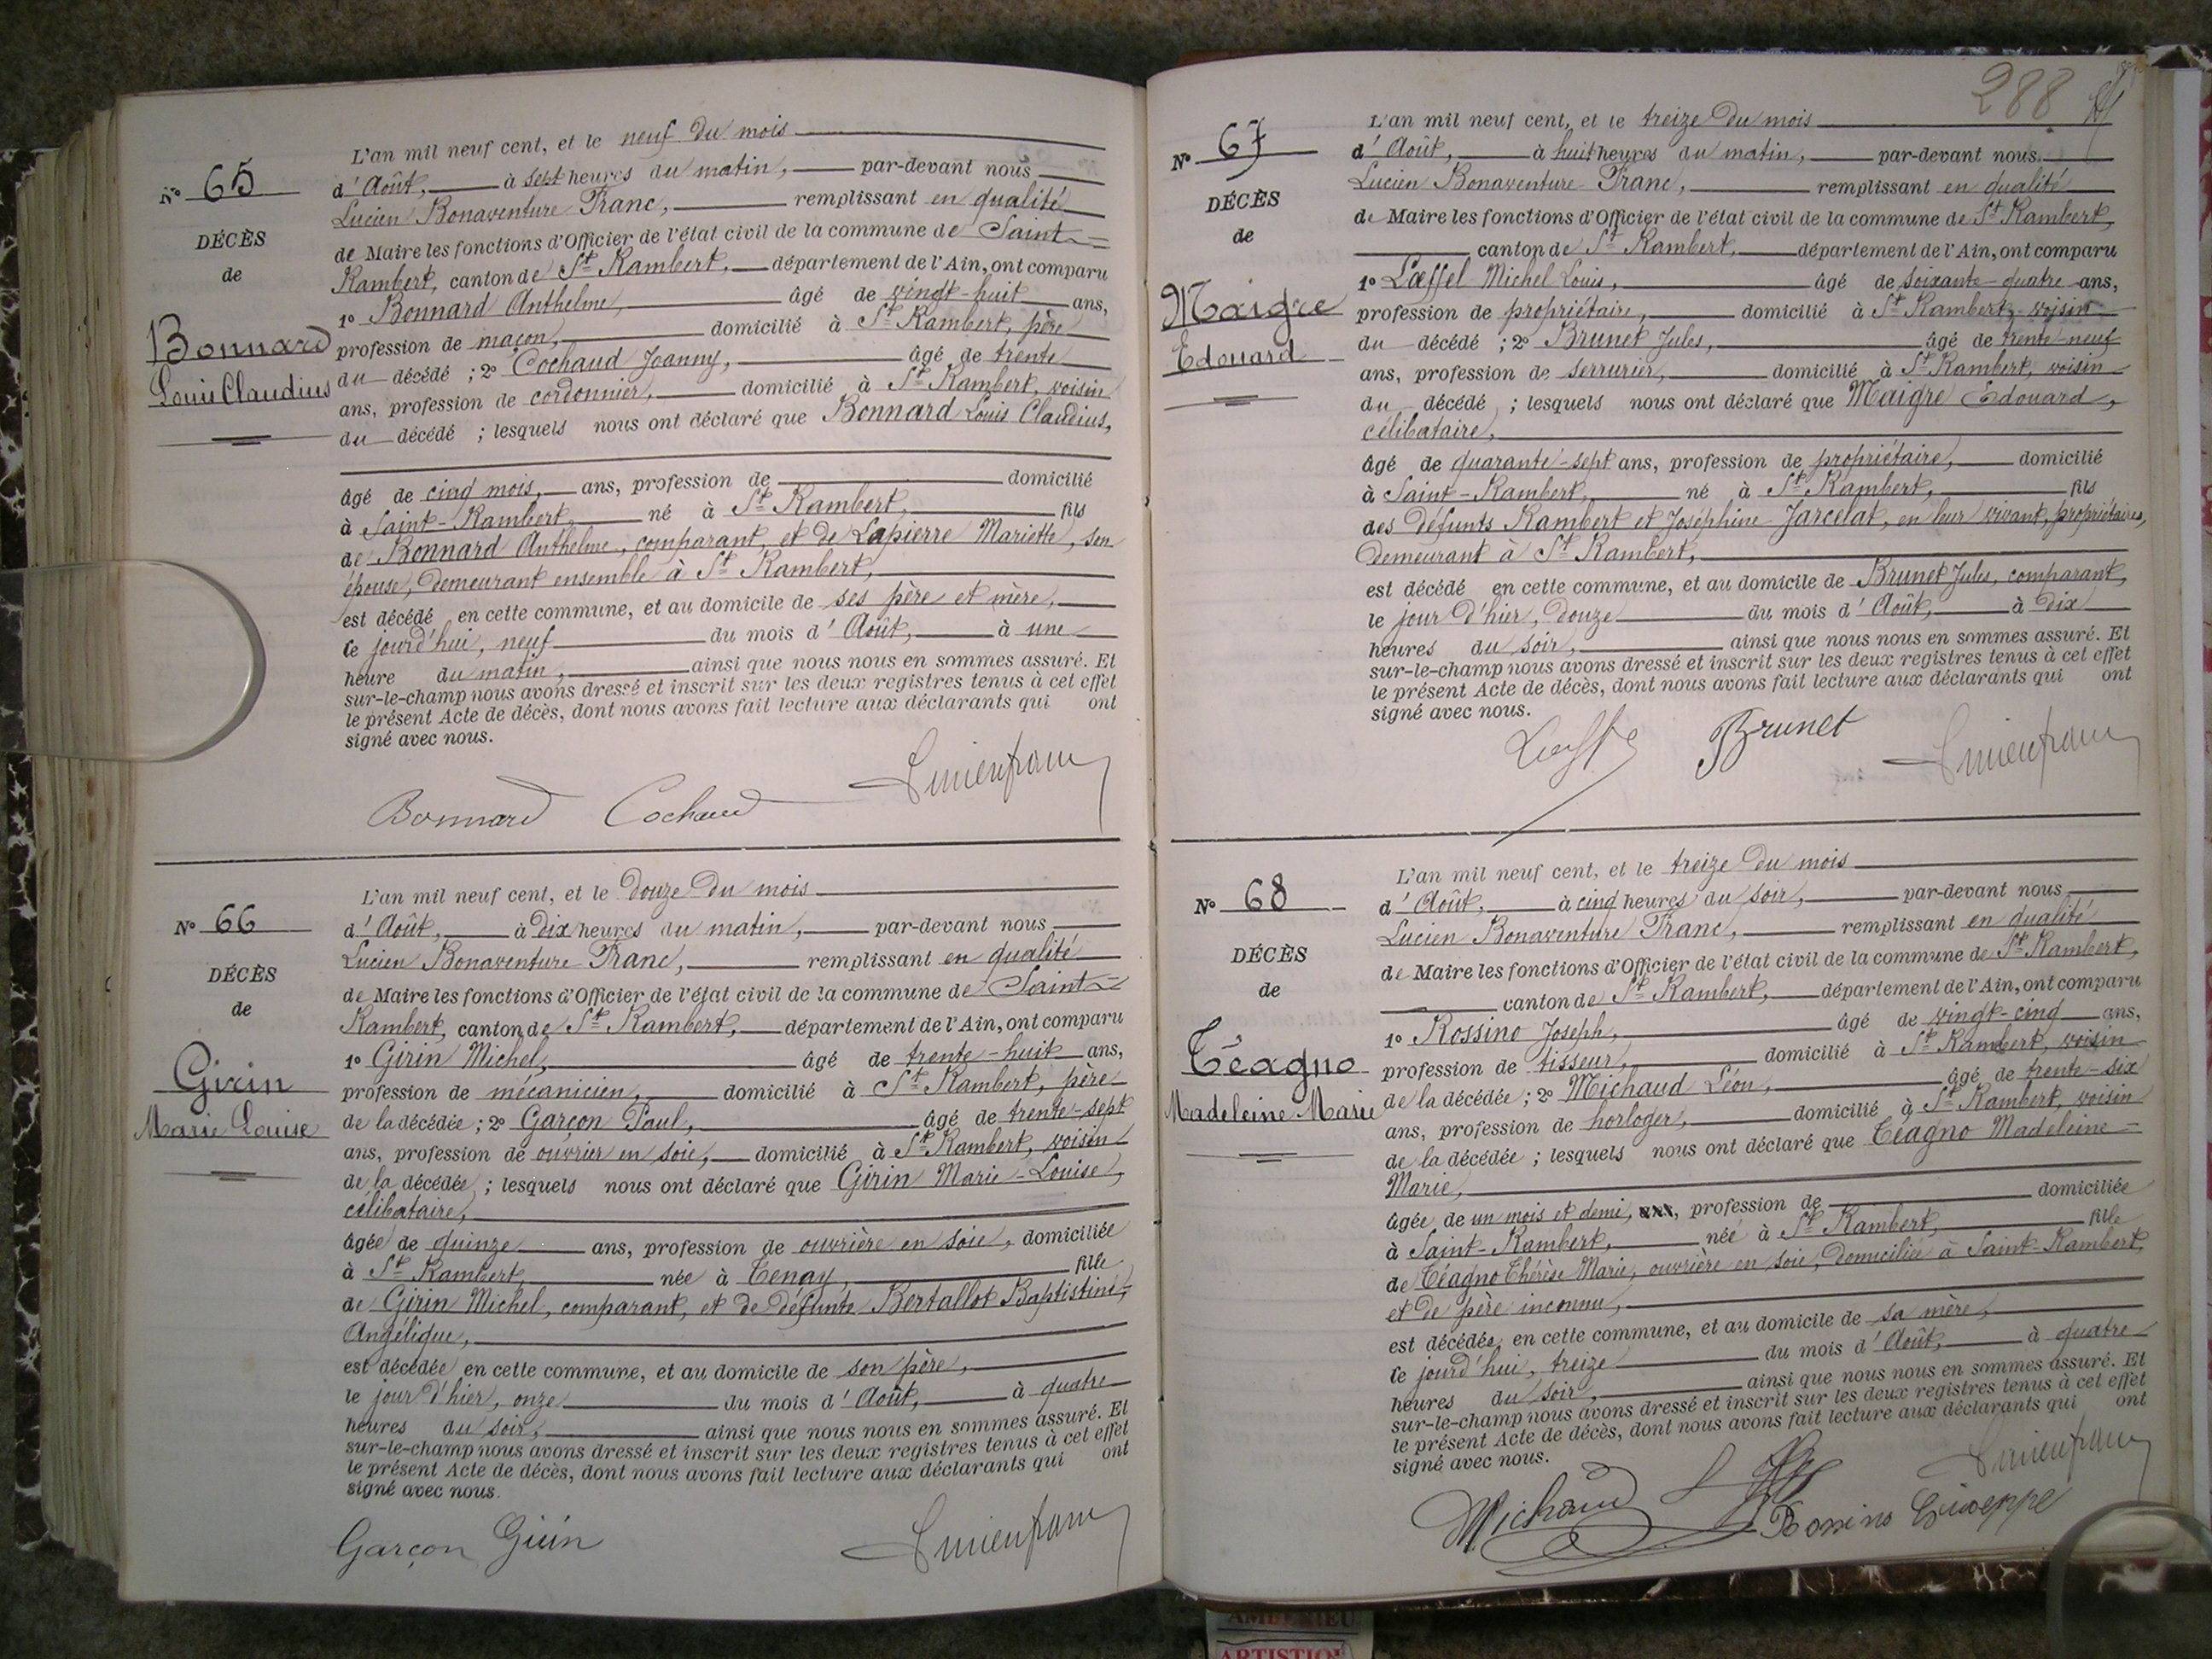 L'an mil neuf cent, et le neuf du mois
Nº 65
d'Août, à sept heures du matin, par-devant nous
Lucien Bonaventure Franc, remplissant en qualité
DÉCÈS
de Maire les fonctions d'Officier de l'état civil de la commune de Saint-
de
Rambert, canton de St Rambert, département de l'Ain, ont comparu
1º Bonnard Anthelme, âgé de vingt-huit ans,
Bonnard
profession de maçon, domicilié à St Rambert, père
Louis Claudius
du décédé ; 2º Cochaud Joanny, âgé de trente
ans, profession de cordonnier, domicilié à St Rambert, voisin
du décédé ; lesquels nous ont déclaré que Bonnard Louis Claudius,
âgé de cinq mois, ans, profession de domicilié
à Saint-Rambert, né à St Rambert, fils
de Bonnard Anthelme, comparant, et de Lapierre Mariette, son
épouse, demeurant ensemble à St Rambert,
est décédé en cette commune, et au domicile de ses père et mère,
ce jourd'hui, neuf du mois d'Août, à une
heure du matin, ainsi que nous nous en sommes assuré. Et
sur-le-champ nous avons dressé et inscrit sur les deux registres tenus à cet effet
le présent Acte de décès, dont nous avons fait lecture aux déclarants qui ont
signé avec nous.
Bonnard Cochaud Lucien franc
L'an mil neuf cent, et le douze du mois
Nº 66
d'Août, à dix heures du matin, par-devant nous
Lucien Bonaventure Franc, remplissant en qualité
DÉCÈS
de Maire les fonctions d'Officier de l'état civil de la commune de Saint-
de
Rambert, canton de St Rambert, département de l'Ain, ont comparu
1º Girin Michel, âgé de trente-huit ans,
Girin
profession de mécanicien, domicilié à St Rambert, père
Marie Louise
de la décédée ; 2º Garçon Paul, âgé de trente-sept
ans, profession de ouvrier en soie, domicilié à St Rambert, voisin
de la décédée ; lesquels nous ont déclaré que Girin Marie-Louise,
célibataire,
âgée de quinze ans, profession de ouvrière en soie, domiciliée
à St Rambert, née à Tenay, fille
de Girin Michel, comparant, et de défunte Bertallot Baptistine-
Angélique,
est décédée en cette commune, et au domicile de son père,
le jour d'hier, onze du mois d'Août, à quatre
heures du soir, ainsi que nous nous en sommes assuré. Et
sur-le-champ nous avons dressé et inscrit sur les deux registres tenus à cet effet
le présent Acte de décès, dont nous avons fait lecture aux déclarants qui ont
signé avec nous.
Garçon Girin Lucien franc
288
L'an mil neuf cent, et le treize du mois
Nº 67
d'Août, à huit heures du matin, par-devant nous
Lucien Bonaventure Franc, remplissant en qualité
DÉCÈS
de Maire les fonctions d'Officier de l'état civil de la commune de St Rambert,
de
canton de St Rambert, département de l'Ain, ont comparu
1º Lœffel Michel Louis, âgé de soixante-quatre ans,
Maigre
profession de propriétaire, domicilié à St Rambert, voisin
Edouard
du décédé ; 2º Brunet Jules, âgé de trente-neuf
ans, profession de serrurier, domicilié à St Rambert, voisin
du décédé ; lesquels nous ont déclaré que Maigre Edouard,
célibataire,
âgé de quarante-sept ans, profession de propriétaire, domicilié
à Saint-Rambert, né à St Rambert, fils
des défunts Rambert et Joséphine Jarcelat, en leur vivant, propriétaires,
demeurant à St Rambert,
est décédé en cette commune, et au domicile de Brunet Jules, comparant,
le jour d'hier, douze du mois d'Août, à dix
heures du soir, ainsi que nous nous en sommes assuré. Et
sur-le-champ nous avons dressé et inscrit sur les deux registres tenus à cet effet
le présent Acte de décès, dont nous avons fait lecture aux déclarants qui ont
signé avec nous.
Brunet Lucien franc
L'an mil neuf cent, et le treize du mois
Nº 68
d'Août, à cinq heures du soir, par-devant nous
Lucien Bonaventure Franc, remplissant en qualité
DÉCÈS
de Maire les fonctions d'Officier de l'état civil de la commune de St Rambert,
de
canton de St Rambert, département de l'Ain, ont comparu
1º Rossino Joseph, âgé de vingt-cinq ans,
Téagno
profession de tisseur, domicilié à St Rambert, voisin
Madeleine Marie
de la décédée ; 2º Michaud Léon, âgé de trente-six
ans, profession de horloger, domicilié à St Rambert, voisin
de la décédée ; lesquels nous ont déclaré que Téagno Madeleine-
Marie,
âgée de un mois et demi, profession de domiciliée
à Saint-Rambert, née à St Rambert, fille
de Téagno Thérèse Marie, ouvrière en soie, domiciliée à Saint-Rambert,
et de père inconnu,
est décédée en cette commune, et au domicile de sa mère,
ce jourd'hui, treize du mois d'Août, à quatre
heures du soir, ainsi que nous nous en sommes assuré. Et
sur-le-champ nous avons dressé et inscrit sur les deux registres tenus à cet effet
le présent Acte de décès, dont nous avons fait lecture aux déclarants qui ont
signé avec nous.
Lucien franc
Michaud Rossino Giuseppe